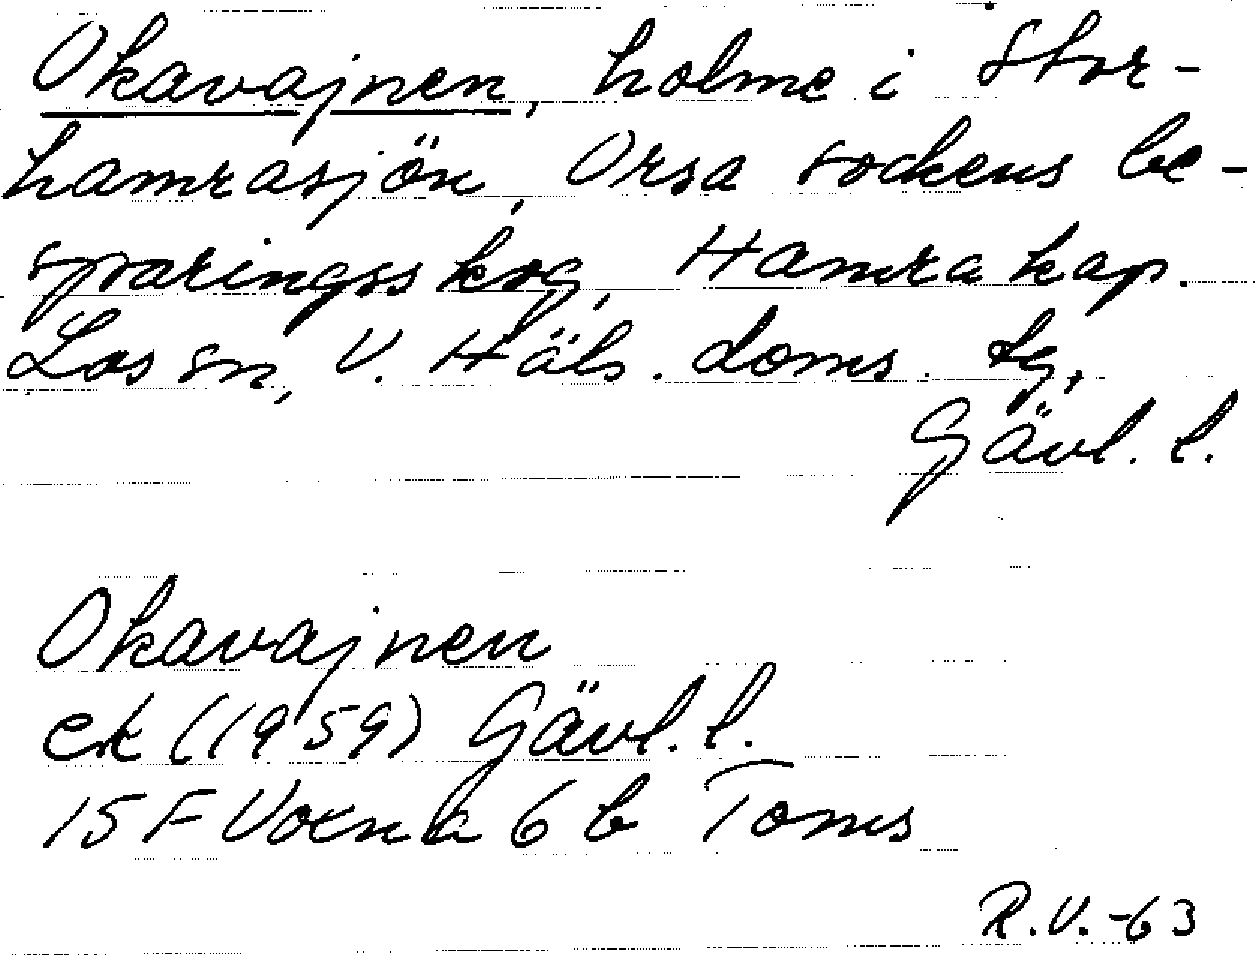 Okavajnen, holme i Stor-
hamrasjön, Orsa sockens be-
sparingsskog, Hamra kap.
Los sn, V. Häls. doms. tg,
Gävl. l.
Okavajnen
ek (1959) Gävl. l.
15 F Voxna 6 b Toms
R.V.-63